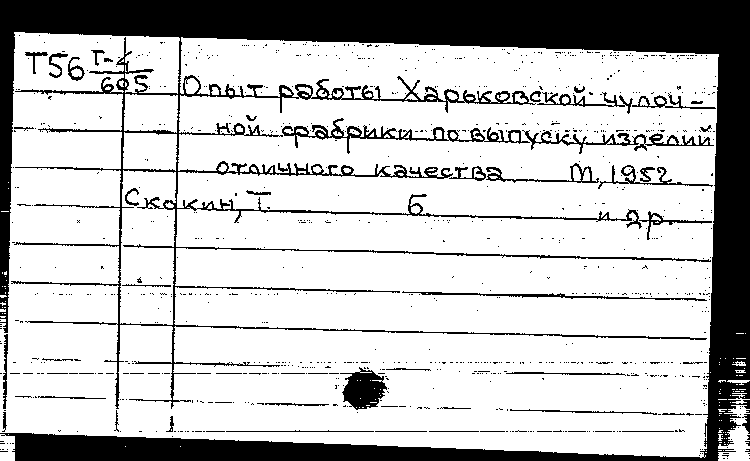 Т56 Т-4/605 Опыт работы Харьковской чулоч-
ной фабрики по выпуску изделий
отличного качества М, 1952
Скокин, Т. Б. и др.